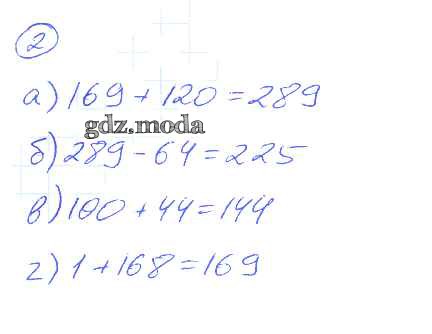 2
а) 169 + 120 = 289
gdz.moda
б) 289 - 64 = 225
в) 100 + 44 = 144
г) 1 + 168 = 169